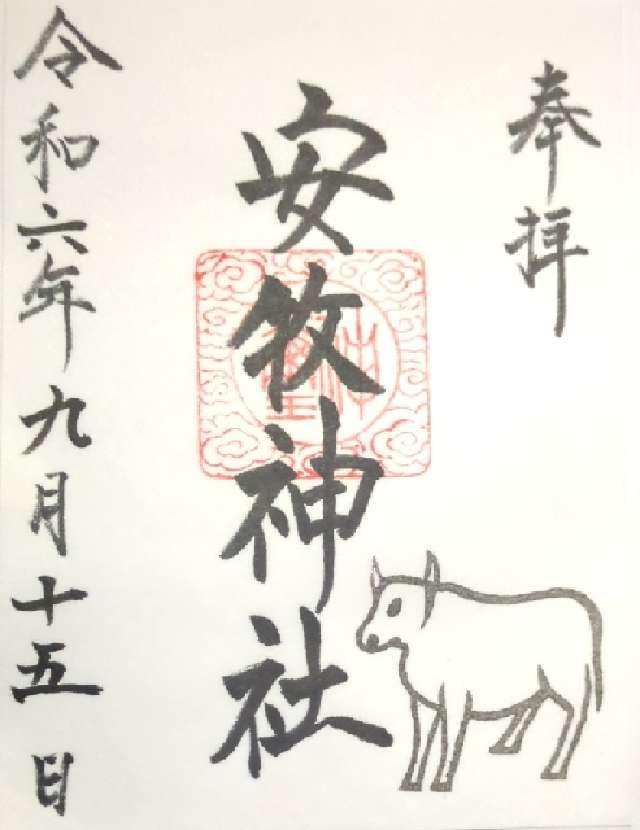 奉拝
安牧神社
令和六年九月十五日